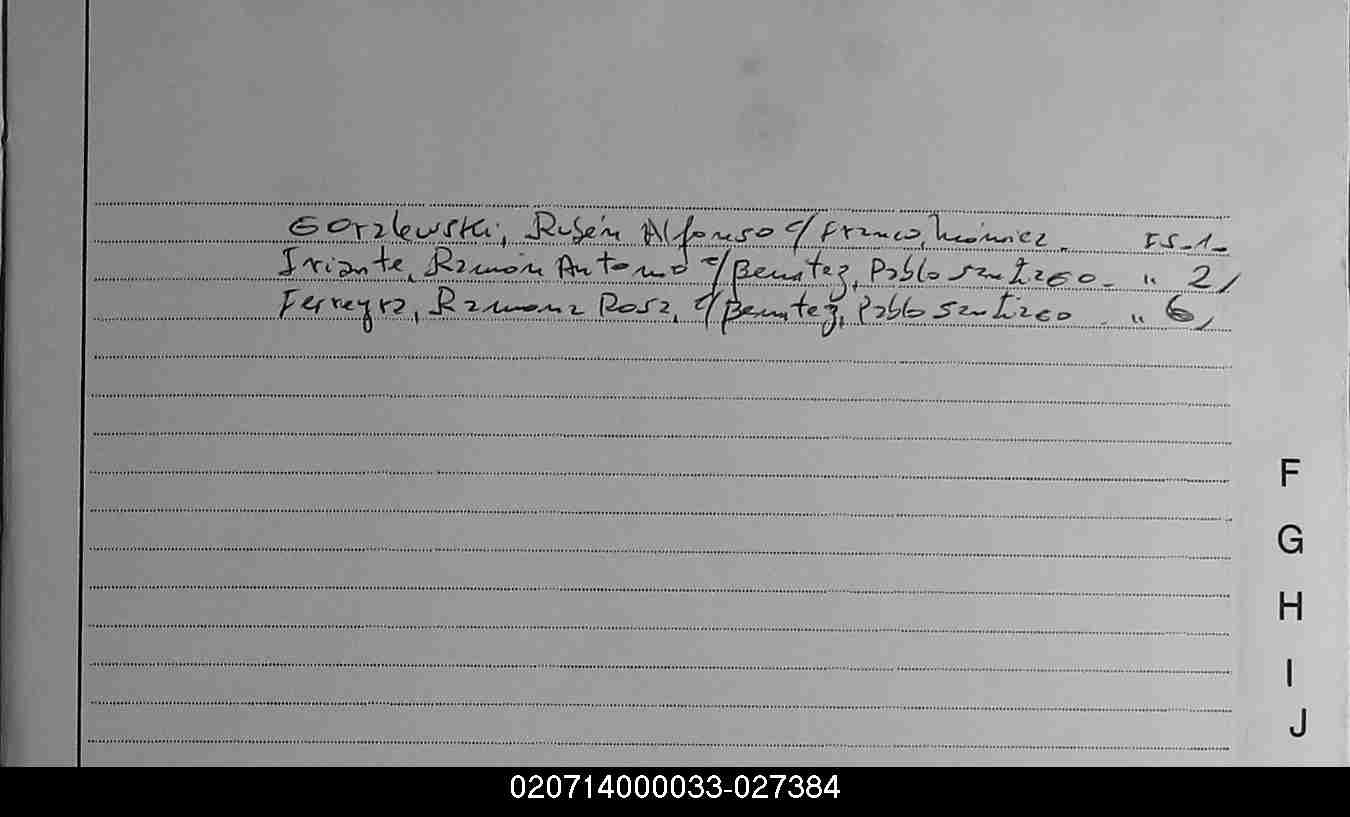 Gorzlewski, Rubén Alfonso c/ Franco, FS-1-
Iriante, Ramón Antonio c/ Benitez, Pablo Santiago - " 2,
Ferreyra, Ramona Rosa, c/ Benitez, Pablo Santiago - " 6,
F
G
H
I
J
020714000033-027384